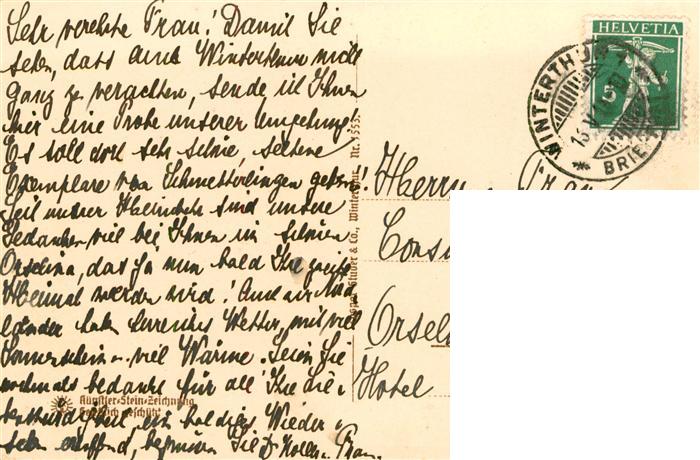 Sehr verehrte Frau! Damit Sie
sehen, dass auch Winterthur nicht
ganz zu verachten, sende ich Ihnen
hier eine Probe unserer Umgebung.
Es soll dort sehr schöne, seltene
Exemplare von Schmetterlingen geben!
Seit unserer Heimkehr sind unsere
Gedanken viel bei Ihnen im schönen
Orselina, das ja nun bald Ihre zweite
Heimat werden wird! Auch wir
länder haben herrliches Wetter, mit viel
Sonnenschein u. viel Wärme. Seien Sie
nochmals bedankt für all' Ihre Liebens-
würdigkeit, ein baldiges Wieder-
sehen erhoffend, begrüssen Sie Dr u. Frau.
Künstler-Stein-Zeichnung
Gesetzlich geschützt
Studer & Co., Winterthur. Nr. 1353.
HELVETIA
5
WINTERTHUR 1
BRIEF
Herrn u. Frau
Cons
Orsel
Hotel